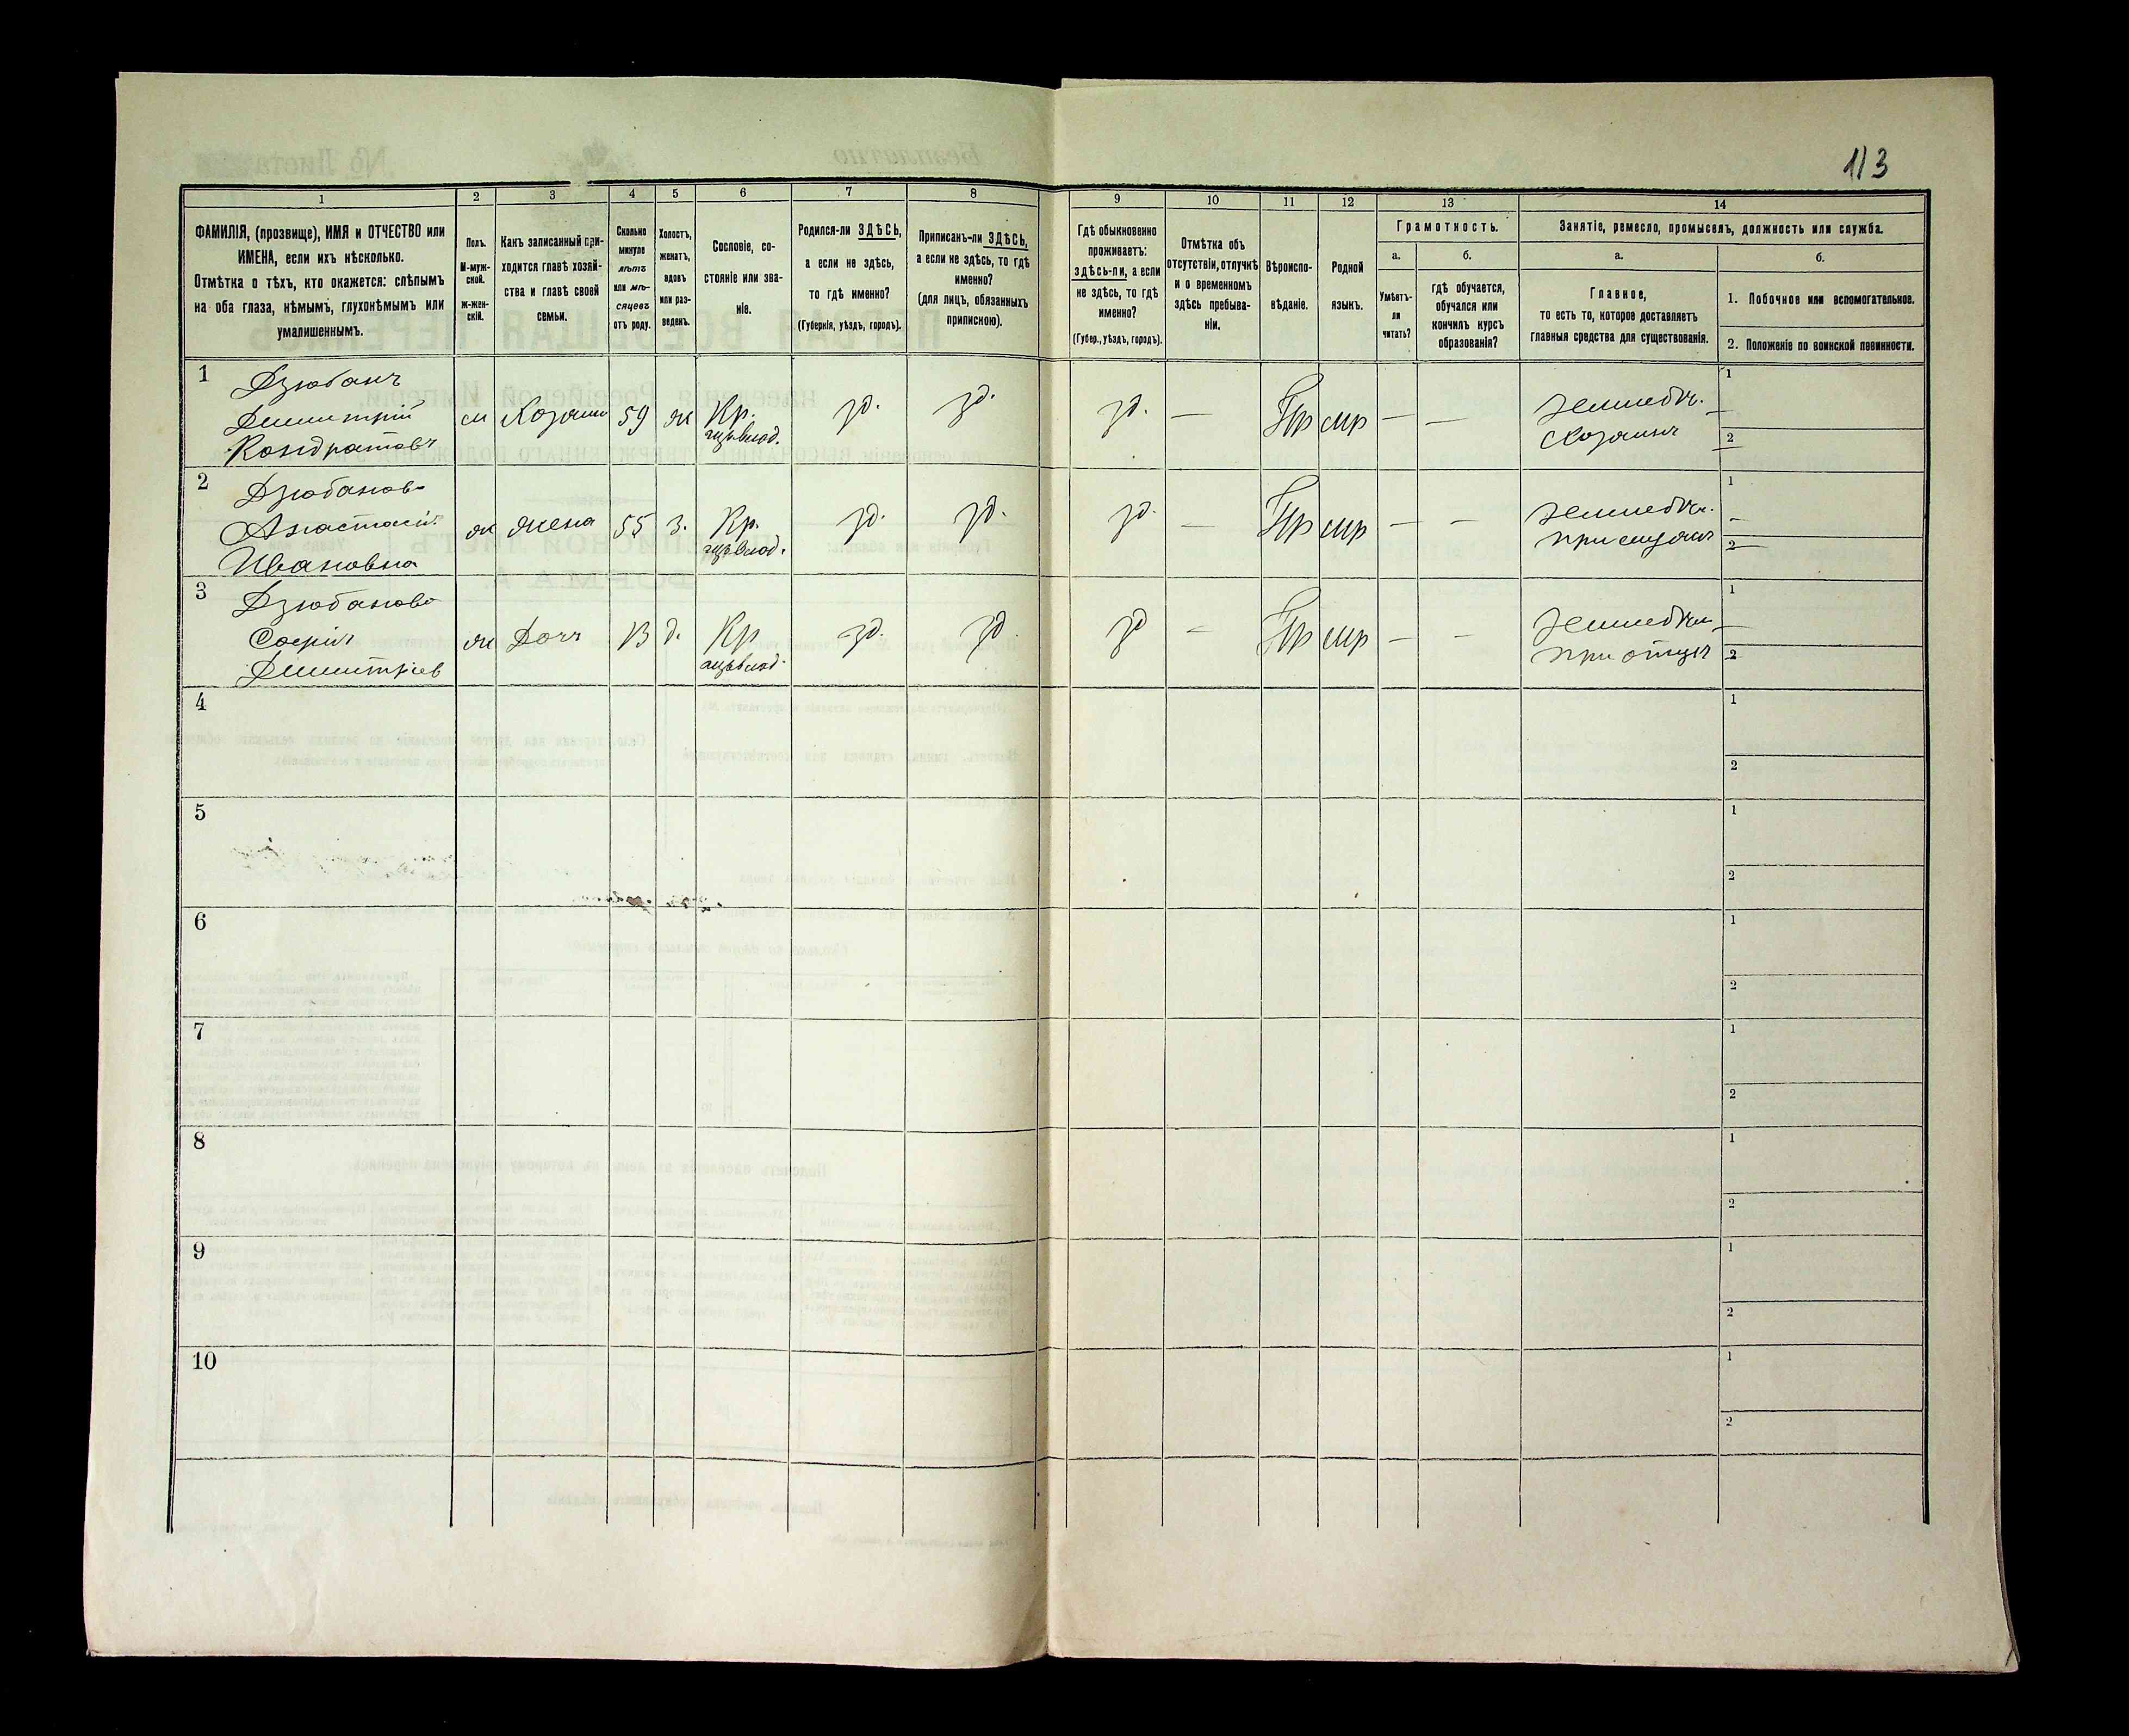 113
1
2
3
4
5
6
7
8
9
10
11
12
13
14
ФАМИЛІЯ, (прозвище), ИМЯ и ОТЧЕСТВО или
ИМЕНА, если ихъ нѣсколько.
Отмѣтка о тѣхъ, кто окажется: слѣпымъ
на оба глаза, нѣмымъ, глухонѣмымъ или
умалишеннымъ.
Полъ.
М-муж-
ской.
ж-жен-
скій.
Какъ записанный при-
ходится главѣ хозяй-
ства и главѣ своей
семьи.
Сколько
минуло
лѣтъ
или мѣ-
сяцевъ
отъ роду.
Холостъ,
женатъ,
вдовъ
или раз-
веденъ.
Сословіе, со-
стояніе или зва-
ніе.
Родился-ли ЗДѢСЬ,
а если не здѣсь,
то гдѣ именно?
(Губернія, уѣздъ, городъ).
Приписанъ-ли ЗДѢСЬ,
а если не здѣсь, то гдѣ
именно?
(для лицъ, обязанныхъ
припискою).
Гдѣ обыкновенно
проживаетъ:
здѣсь-ли, а если
не здѣсь, то гдѣ
именно?
(Губер., уѣздъ, городъ).
Отмѣтка объ
отсутствіи, отлучкѣ
и о временномъ
здѣсь пребыва-
ніи.
Вѣроиспо-
вѣданіе.
Родной
языкъ.
Грамотность.
а.
Умѣетъ-
ли
читать?
б.
гдѣ обучается,
обучался или
кончилъ курсъ
образованія?
Занятіе, ремесло, промыселъ, должность или служба.
а.
Главное,
то есть то, которое доставляетъ
главныя средства для существованія.
б.
1. Побочное или вспомогательное.
2. Положеніе по воинской повинности.
1
Дзюбанъ
Димитрій
Кондратовъ
м
Хозяин
59
ж
Кр.
зд.
зд.
зд.
—
Пр
мр
—
—
Хозяинъ
1
—
2
—
2
Дзюбанов
Анастасія
Ивановна
ж
жена
55
з.
Кр.
зд.
зд.
зд.
—
Пр
мр
—
—
при мужѣ
1
—
2
—
3
Дзюбанова
Софія
Димитріев
ж
Дочь
13
д.
Кр
зд.
зд
зд
—
Пр
мр
—
—
при отцѣ
1
—
2
4
1
2
5
1
2
6
1
2
7
1
2
8
1
2
9
1
2
10
1
2